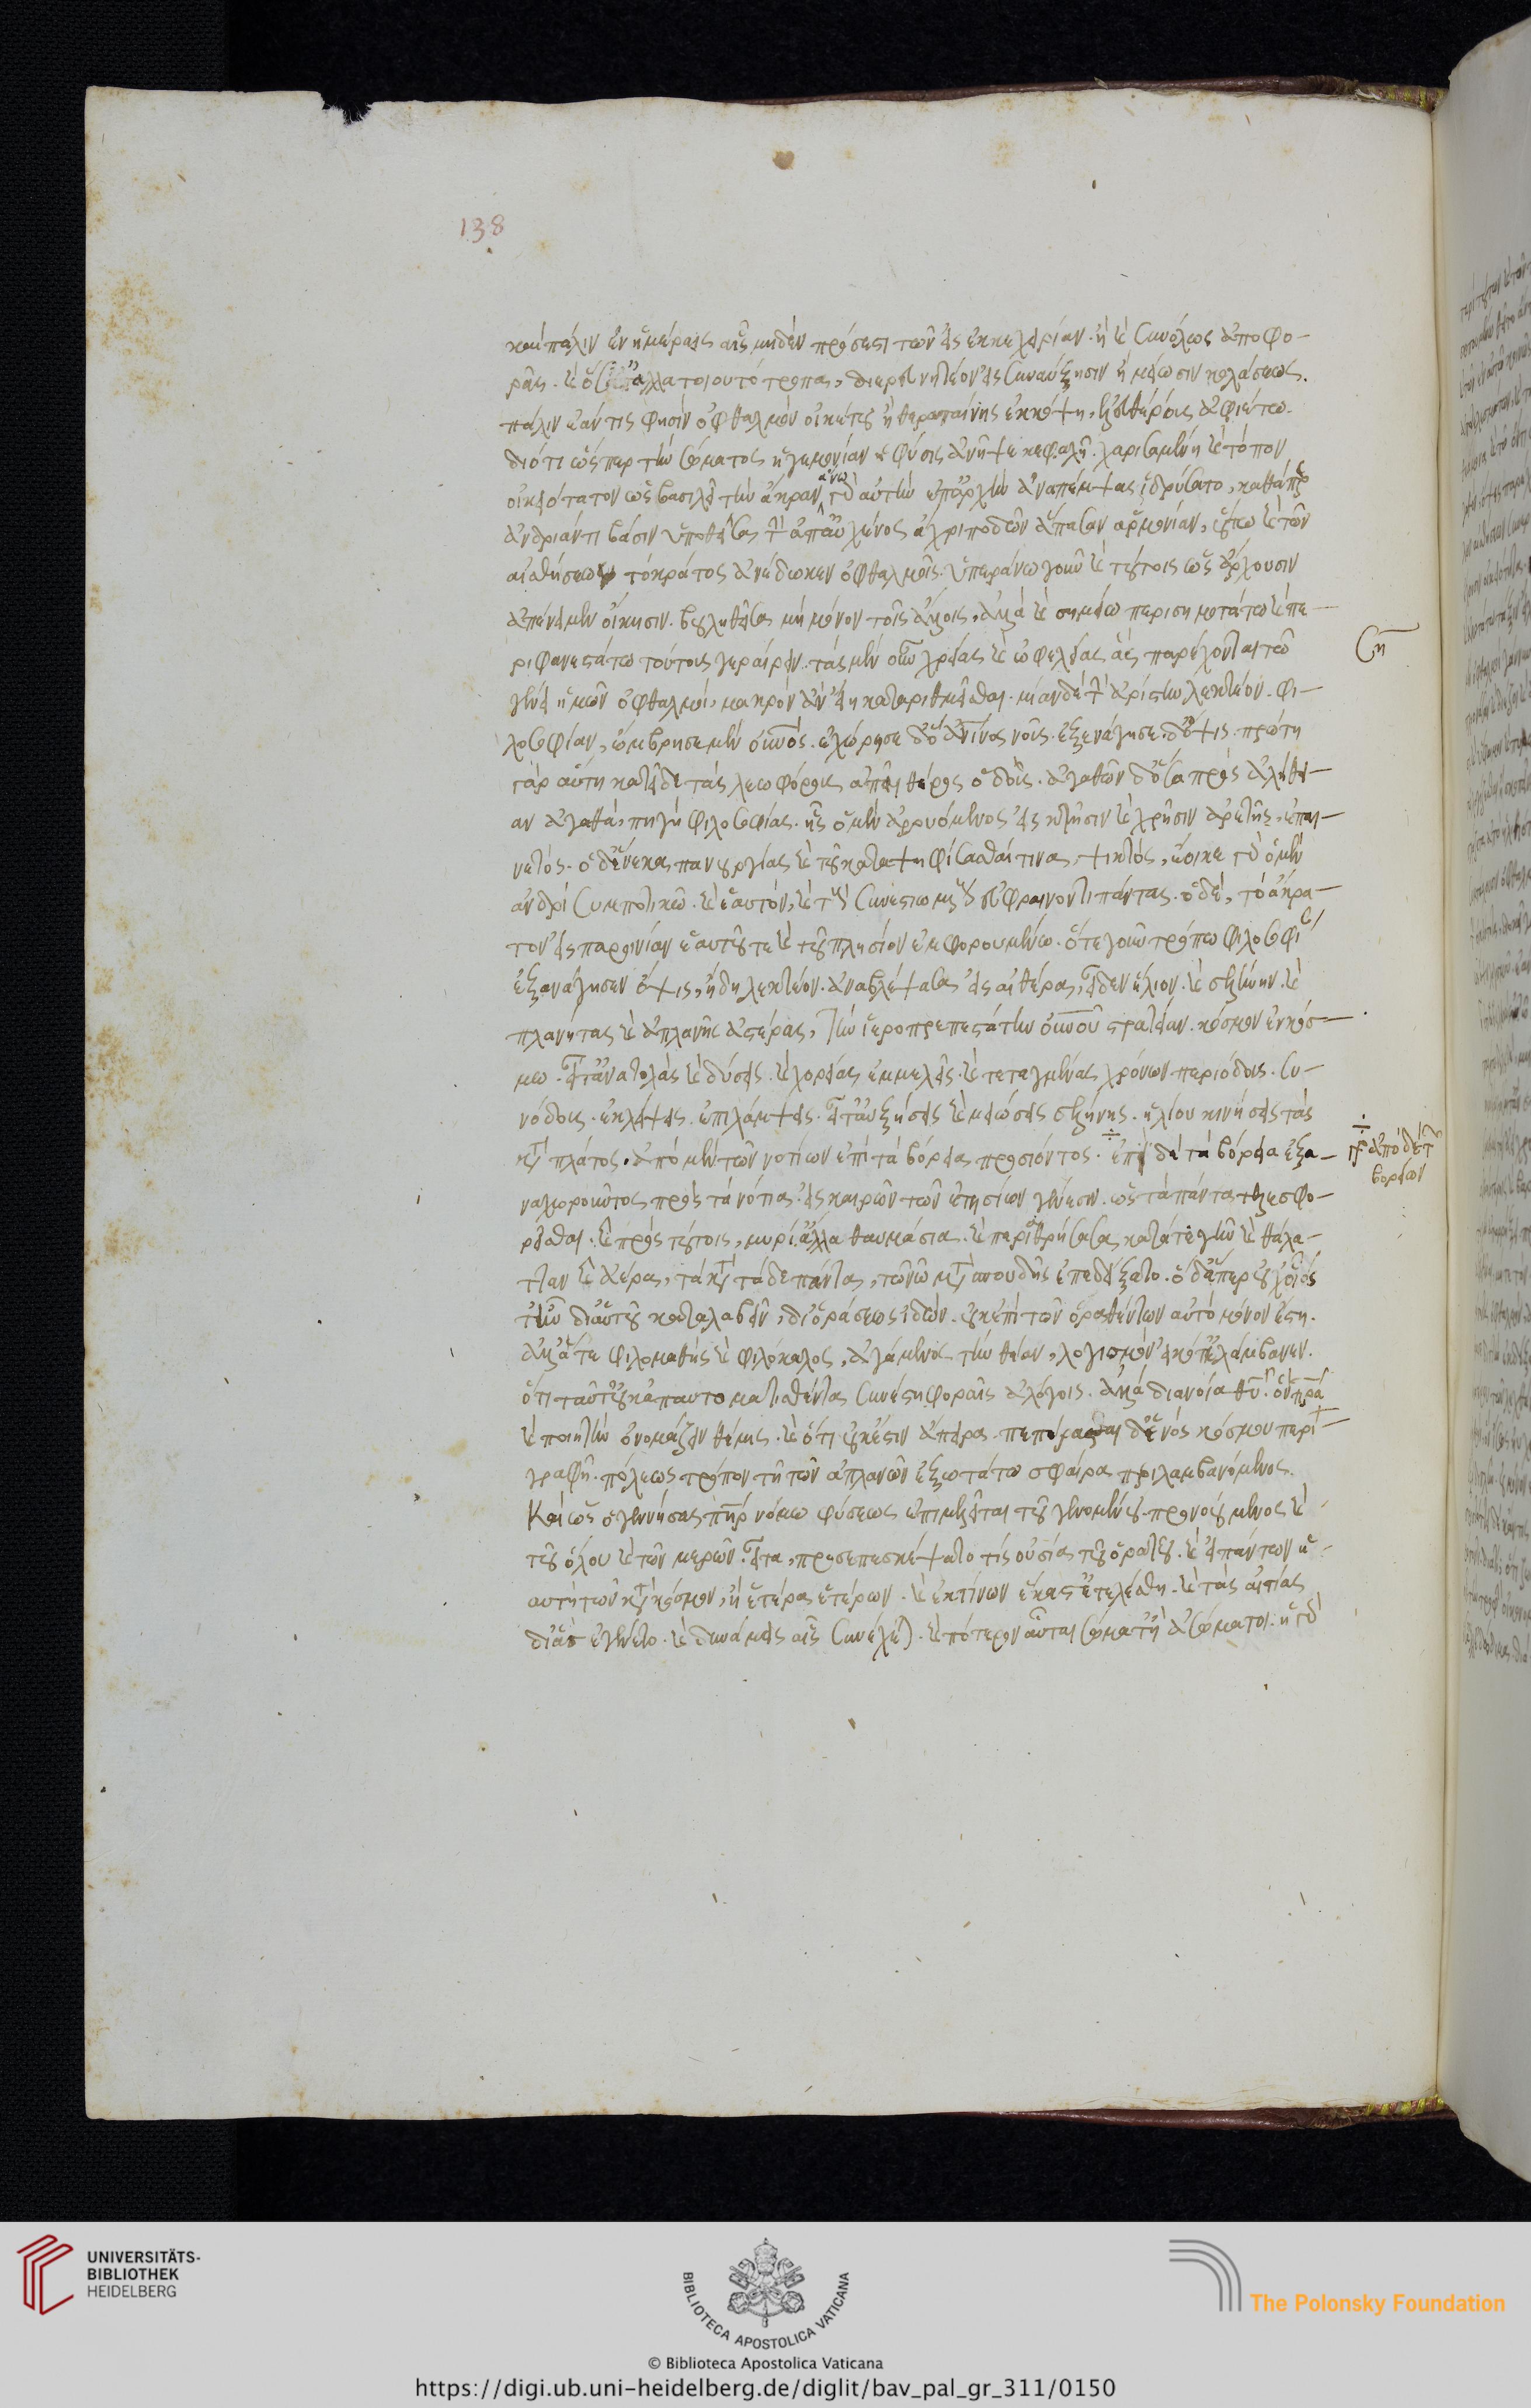 138
καὶ πάλιν ἐν ἡμέραις αἷς μηδὲν πρόσεστι τῶν εἰς ἐκκεχειρίαν· ἢ καὶ συνόλως ἀποφο-
ρᾶς· καὶ ὅσα ἄλλα τοιουτότροπα, διερευνητέον εἰς συναύξησιν ἢ μείωσιν κολάσεως.
πάλιν ἐάν τις φησὶν ὀφθαλμὸν οἰκέτου ἢ θεραπαίνης ἐκκόψη, ἐλευθέρους ἀφιέτω.
διότι ὥσπερ τὴν σώματος ἡγεμονίαν ἡ φύσις ἀνῆψε κεφαλῆ· χαρισαμένη καὶ τόπον
οἰκειότατον ὡς βασιλεῖ τὴν ἄκραν ἄνω γὰρ αὐτὴν ἐπαρχὴν ἀναπέμψας ἱδρύσατο, καθάπερ
ἀνδριάντι βάσιν ὑποθεῖσα τὴν ἀπαυχένος ἄχρι ποδῶν ἅπασαν ἁρμονίαν, οὕτω καὶ τῶν
αἰσθήσεων τὸ κράτος ἀνέδωκεν ὀφθαλμοῖς· ὑπεράνω γοῦν καὶ τούτοις ὡς ἄρχουσιν
ἀπένειμεν οἴκησιν. βουληθεῖσα μὴ μόνον τοῖς ἄλλοις, ἀλλὰ καὶ σημείω περισημοτάτω καὶ πε-
ριφανεστάτω τούτους γεραίρειν. τὰς μὲν οὖν χρείας καὶ ὠφελείας ἃς παρέχονται τῶ
γένει ἡμῶν ὀφθαλμοί, μακρὸν ἂν εἴη καταριθμεῖσθαι. μίαν δὲ τὴν ἀρίστην λεκτέον. φι-
λοσοφίαν, ὤμβρησε μὲν οὐρανός. ἐχώρησε δὲ ὁ ἀνθρώπινος νοῦς. ἐξενάγησε δὲ ὄψις. πρώτη
γὰρ αὕτη κατεῖδε τὰς λεωφόρους αἰθέρος ὁδούς. ἀγαθῶν δὲ ὅσα πρὸς ἀλήθει-
αν ἀγαθά, πηγὴ φιλοσοφίας. ἧς ὁ μὲν ἀρυόμενος εἰς κτῆσιν καὶ χρῆσιν ἀρετῆς, ἐπαι-
νετός. ὁ δ' ἕνεκα πανουργίας καὶ τοῦ καταψηφίσασθαί τινας, ψεκτός, ἔοικε γὰρ ὁ μὲν
ἀνδρὶ συμποτικῶ. καὶ ἑαυτόν, καὶ τοὺς συνεστιωμένους εὐφραίνοντι πάντας. ὁ δέ, τὸ ἄκρα-
τον εἰς παροινίαν ἑαυτοῦ τε καὶ τοῦ πλησίον ἐμφορουμένω. ὅτε γοῦν τρόπω φιλοσοφί
ἐξενάγησεν ὄψις, ἤδη λεκτέον. ἀναβλέψασα εἰς αἰθέρα, εἶδεν ἥλιον. καὶ σελήνην. καὶ
πλανήτας καὶ ἀπλανεῖς ἀστέρας, τὴν ἱεροπρεπεστάτην οὐρανοῦ στρατείαν. κόσμον ἐν κόσ-
μω. εἶτα ἀνατολὰς καὶ δύσεις. καὶ χορείας ἐμμελεῖς. καὶ τεταγμένας χρόνων περιόδους. συ-
νόδους. ἐκλείψεις. ἐπιλάμψεις. εἶτα αὐξήσεις καὶ μειώσεις σελήνης. ἡλίου κινήσεις τὰς
κατὰ πλάτος. ἀπὸ μὲν τῶν νοτίων ἐπὶ τὰ βόρεια προσιόντος. ἐπὶ δὲ τὰ βόρεια ἐξα-
ναχωροῦντος πρὸς τὰ νότια. εἰς καιρῶν τῶν ἐτησίων γένεσιν. ὡς τὰ πάντα τελεσφο-
ρεῖσθαι. καὶ πρὸς τούτοις, μυρία ἄλλα θαυμάσια. καὶ περιαθρήσασα κατά τε γῆν καὶ θάλα-
τταν καὶ ἀέρα, τὰ κατὰ τάδε πάντα, τῶ νῶ μετὰ σπουδῆς ἐπεδείξατο. ὁ δ' ἅπερ οὐχ οἷός
τε ἦν δι' αὑτοῦ καταλαβεῖν, δι' ὁράσεως ἰδών. οὐκ ἐπὶ τῶν ὁραθέντων αὐτὸ μόνον ἔστη.
ἀλλ' ἅτε φιλομαθὴς καὶ φιλόκαλος, ἀγάμενος τὴν θέαν, λογισμὸν εἰκότα ἐλάμβανεν.
ὅτι ταῦτ' οὐκ ἀπαυτοματισθέντα συνέστη φοραῖς ἀλόγοις. ἀλλὰ διανοία θεοῦ. ὃν πατέρα
καὶ ποιητὴν ὀνομάζειν θέμις. καὶ ὅτι οὐκ ἔστιν ἄπειρα. πεπέρασται δὲ ἑνὸς κόσμου περι-
γραφῆ. πόλεως τρόπον τῆ τῶν ἀπλανῶν ἐξωτάτω σφαίρα περιλαμβανόμενος.
Καὶ ὡς ὁ γεννήσας πατὴρ νόμω φύσεως ἐπιμελεῖται τοῦ γενομένου. προνοούμενος καὶ
τοῦ ὅλου καὶ τῶν μερῶν. εἶτα, προσεπεσκέψατο τίς οὐσία τοῦ ὁρατοῦ. καὶ εἰ πάντων ἡ
αὐτὴ τῶν κατὰ κόσμον, ἢ ἑτέρα ἑτέρων. καὶ ἐκ τίνων ἕκαστα ἐτελέσθη. καὶ τὰς αἰτίας
δι' ἃς ἐγένετο. καὶ δυνάμεις αἷς συνέχεται. καὶ πότερον αὗται σώματα ἢ ἀσώματοι. ἢ γὰρ
ση
γρ ἀπὸ δὲ τῶν
βορείων
UNIVERSITÄTS-
BIBLIOTHEK
HEIDELBERG
BIBLIOTECA APOSTOLICA VATICANA
The Polonsky Foundation
© Biblioteca Apostolica Vaticana
https://digi.ub.uni-heidelberg.de/diglit/bav_pal_gr_311/0150